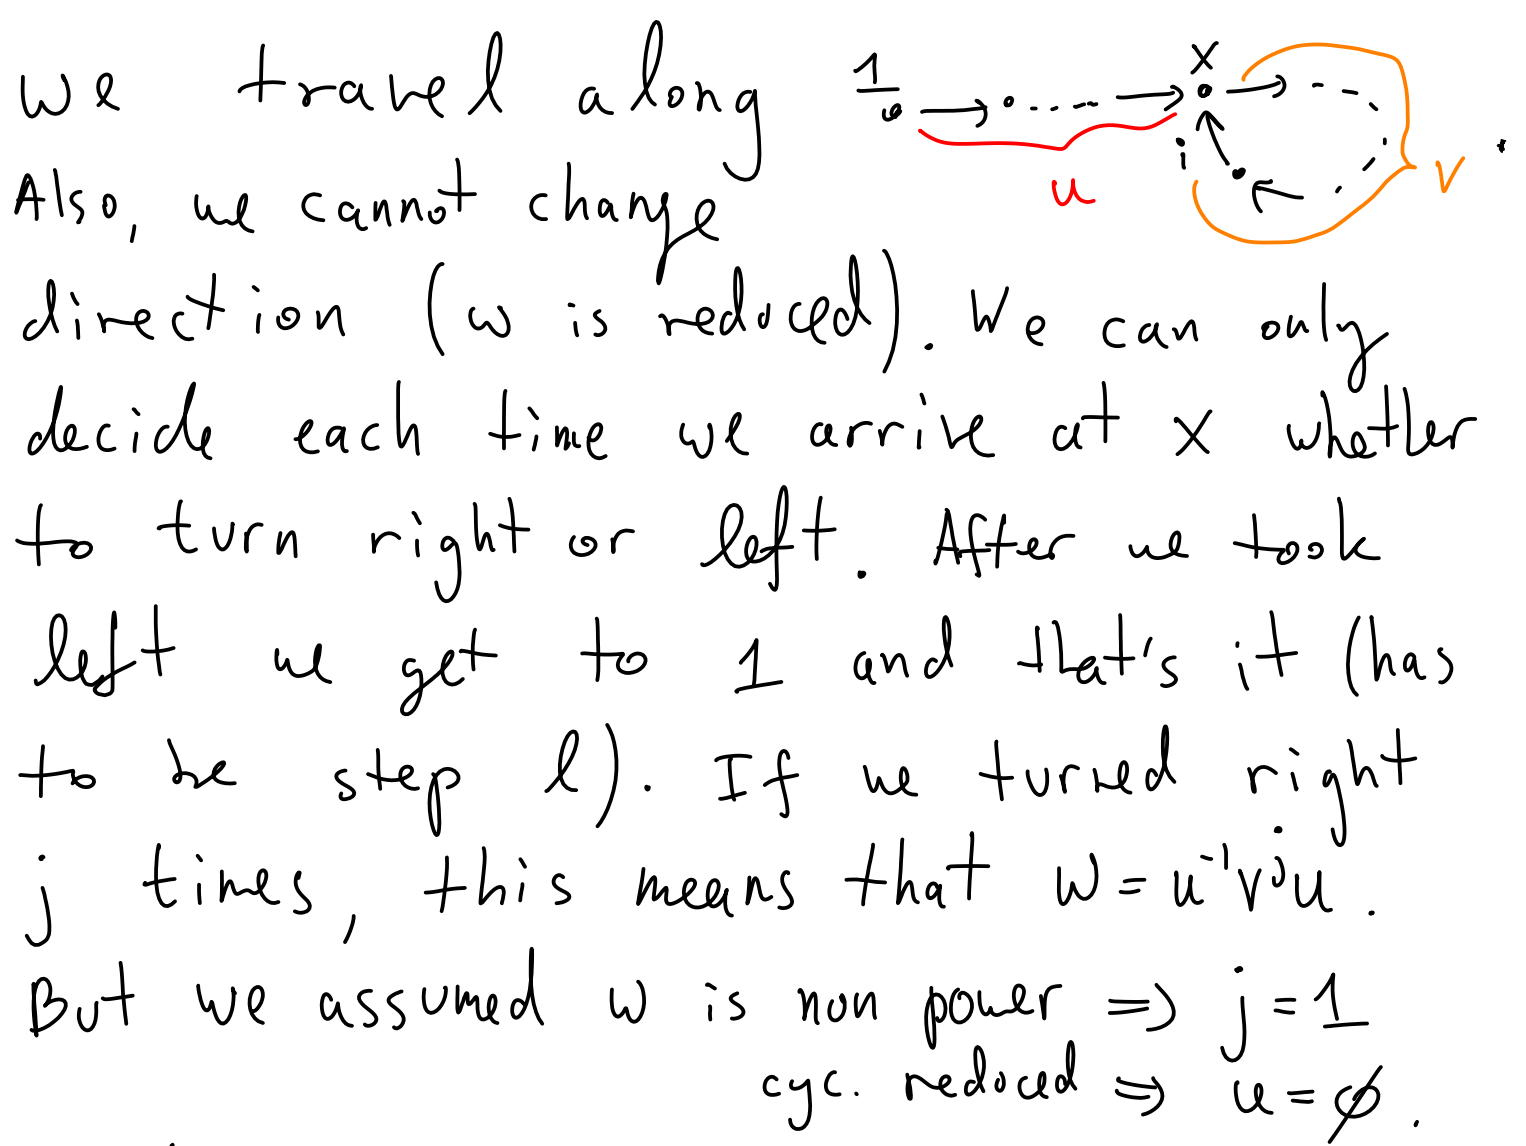 we travel along
1 x
i
u v .
Also, we cannot change
direction (w is reduced). We can only
decide each time we arrive at x whether
to turn right or left. After we took
left we get to 1 and that's it (has
to be step l). If we turned right
j times, this means that w = u⁻¹vʲu.
But we assumed w is non power ⇒ j = 1
cyc. reduced ⇒ u = ∅.